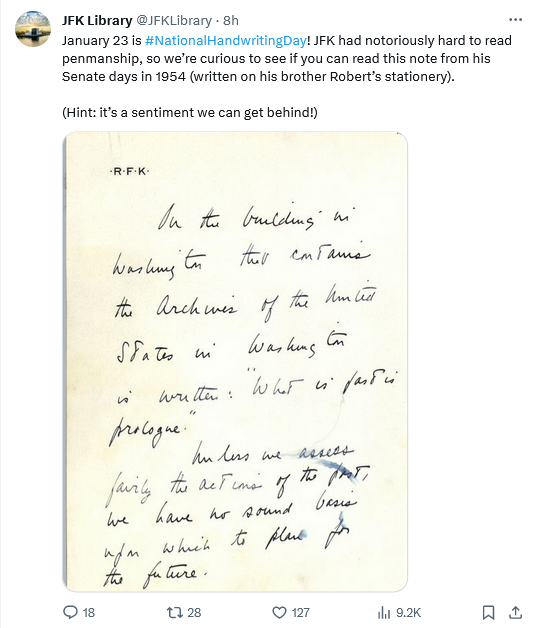 JFK Library @JFKLibrary · 8h
January 23 is #NationalHandwritingDay! JFK had notoriously hard to read
penmanship, so we're curious to see if you can read this note from his
Senate days in 1954 (written on his brother Robert's stationery).
(Hint: it's a sentiment we can get behind!)
·R·F·K·
On the building in
Washington that contains
the Archives of the United
States in Washington
is written: "What is past is
prologue."
Unless we assess
fairly the actions of the past,
we have no sound basis
upon which to plan for
the future.
18 28 127 9.2K